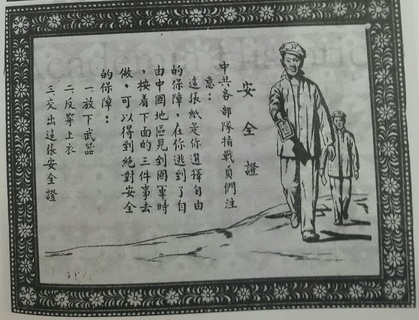 安全證
中共各部隊指戰員們注
意：
這張紙是你選擇自由
的保障，在你逃到了自
由中國地區見到國軍時
，按着下面的三件事去
做，可以得到絕對安全
的保障：
一放下武器
二反穿上衣
三交出這張安全證